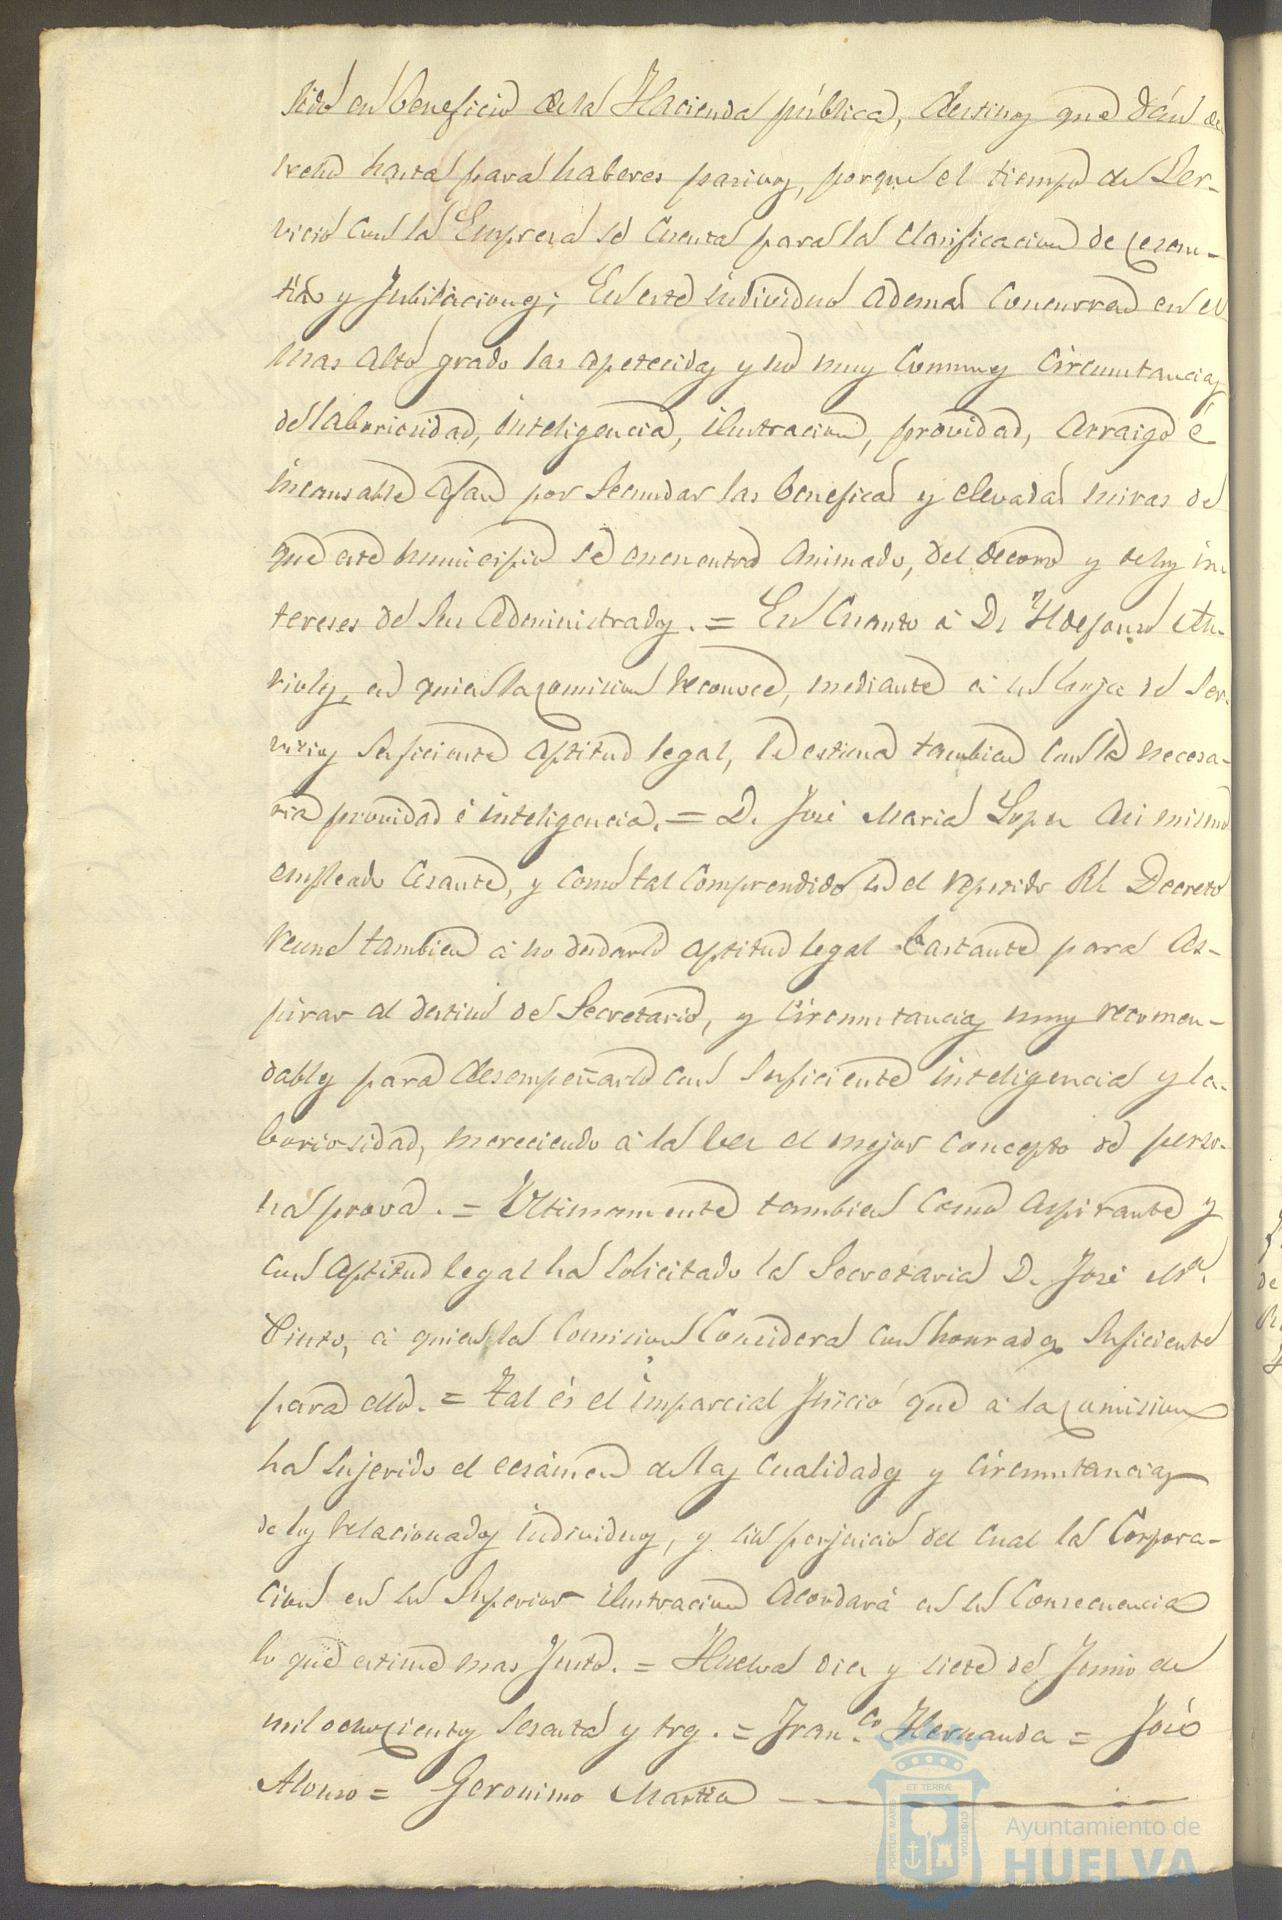 sido en beneficio de la Hacienda pública, destinos que dán de
recho hasta para haberes pasivos, porque el tiempo de Ser-
vicio con la Empresa se cuenta para la clasificacion de cesan-
tias y Jubilaciones; En este individuo ademas concurren en el
mas alto grado las apetecidas y no muy comunes circunstancias
de laboriosidad, inteligencia, ilustracion, providad, arraigo é
incansable afan por secundar las beneficas y elevadas miras de
que este municipio se encuentra animado, del decoro y de los in
tereses de sus administrados. = En cuanto á Dn Yldefonso
en quien la comision reconoce, mediante á su hoja de Ser-
vicios suficiente aptitud legal, le estima tambien con la necesa-
ria providad é inteligencia. = D. José Maria Lopez asi mismo
empleado cesante, y como tal comprendido en el repetido Rl Decreto
reune tambien á no dudarlo aptitud legal bastante para as-
pirar al destino de Secretario, y circunstancias muy recomen-
dables para desempeñarlo con suficiente inteligencia y la-
boriosidad, mereciendo á la vez el mejor concepto de perso-
na prova. = Ultimamente tambien como aspirante y
con aptitud legal ha solicitado la Secretaria D. José Mª.
Pinto, á quien la Comision considera con honradez suficiente
para ello. = Tal és el imparcial Juicio que á la comision
ha sujerido el ecsámen de las cualidades y circunstancias
de los relacionados individuos, y sin perjuicio del cual la Corpora-
cion en su Superior ilustracion acordará en su consecuencia
lo que estime mas Justo. = Huelva diez y siete de Junio de
mil ochocientos sesenta y tres. = Fran.co Hernandez = José
Alonso = Geronimo Martin
PORTUS MARIS ET TERRÆ CUSTODIA
Ayuntamiento de
HUELVA